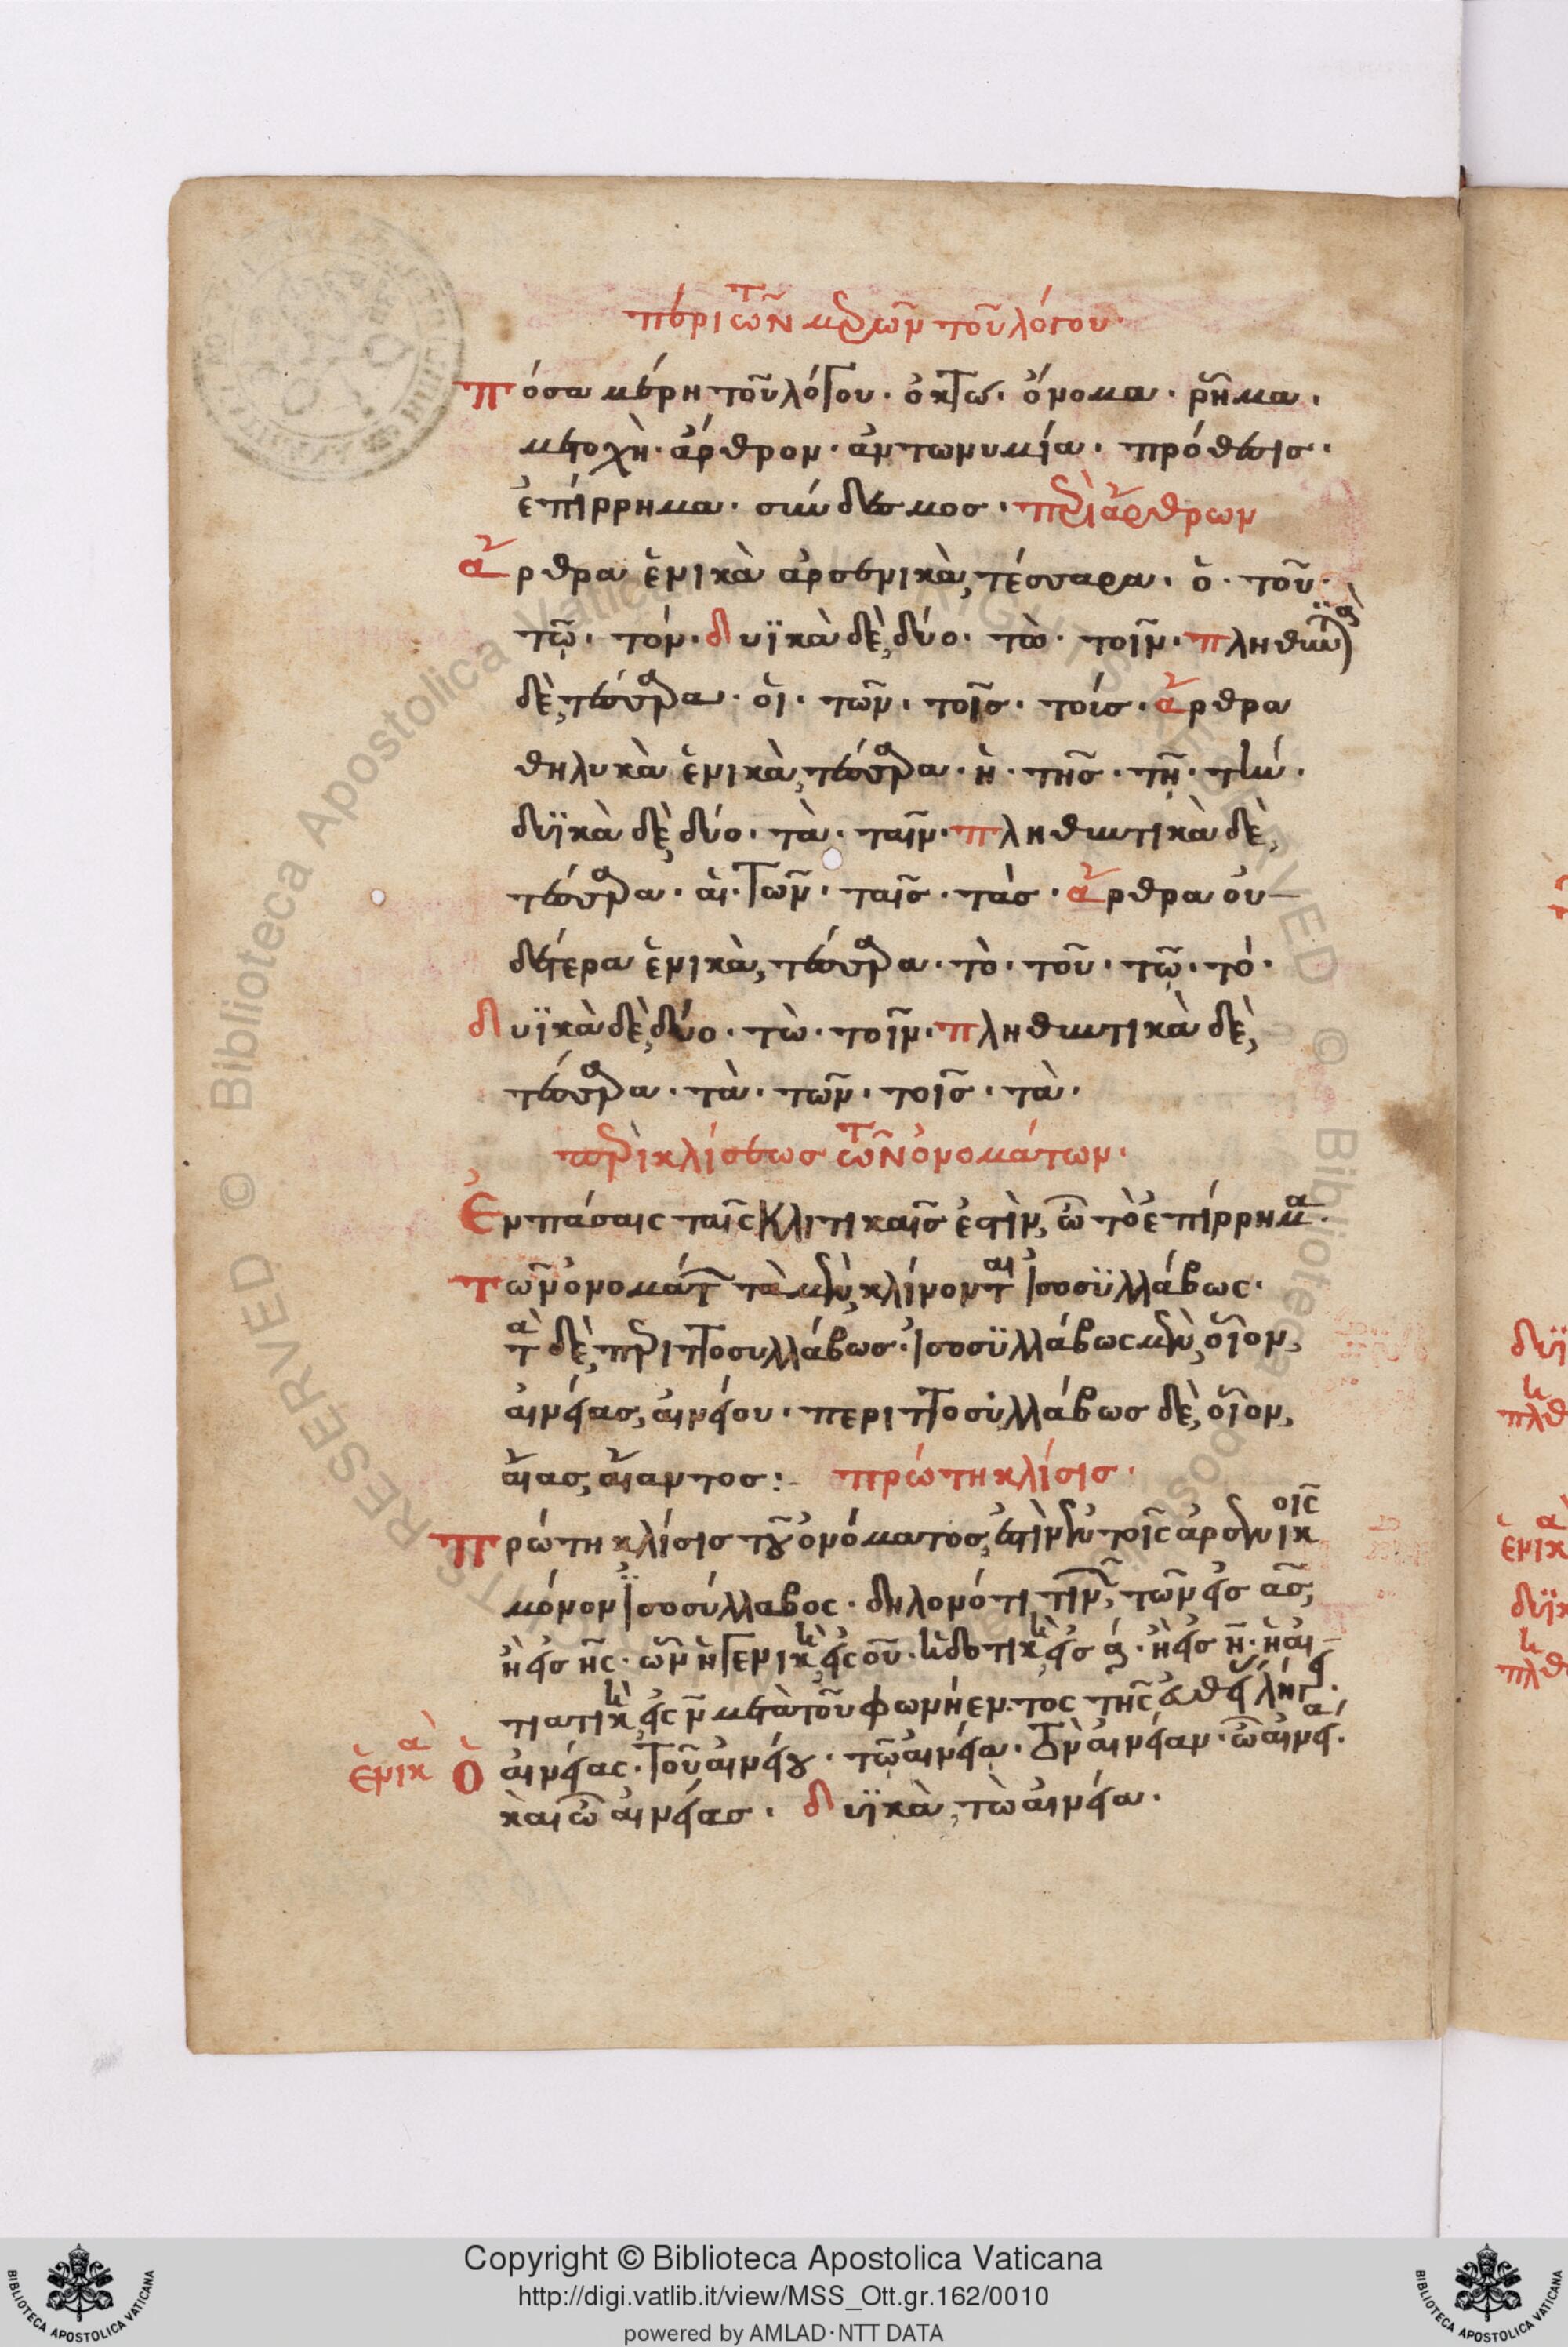 περὶ τῶν μερῶν τοῦ λόγου·
πόσα μέρη τοῦ λόγου· ὀκτώ· ὄνομα· ῥῆμα·
μετοχὴ· ἄρθρον· ἀντωνυμία· πρόθεσις·
ἐπίρρημα· σύνδεσμος· περὶ ἄρθρων
ἄρθρα ἑνικὰ ἀρσενικὰ, τέσσαρα· ὁ· τοῦ·
τῷ· τόν· δυϊκὰ δὲ, δύο· τὼ· τοῖν· πληθυντικὰ
δὲ, τέσσαρα· οἱ· τῶν· τοῖς· τούς· ἄρθρα
θηλυκὰ ἑνικὰ, τέσσαρα· ἡ· τῆς· τῇ· τήν·
δυϊκὰ δὲ, δύο· τὰ· ταῖν· πληθυντικὰ δὲ,
τέσσαρα· αἱ· τῶν· ταῖς· τάς· ἄρθρα οὐ-
δέτερα ἑνικὰ, τέσσαρα· τὸ· τοῦ· τῷ· τό·
δυϊκὰ δὲ, δύο· τὼ· τοῖν· πληθυντικὰ δὲ,
τέσσαρα· τὰ· τῶν· τοῖς· τὰ·
περὶ κλίσεως τῶν ὀνομάτων·
Ἐν πάσαις ταῖς κλιτικαῖς ἐστὶν, ὦ τὸ ἐπίρρημα·
τῶν ὀνομάτων τὰ μὲν, κλίνονται ἰσοσυλλάβως·
τὰ δὲ, περιττοσυλλάβως· ἰσοσυλλάβως μὲν, οἷον,
αἰνείας, αἰνείου· περιττοσυλλάβως δὲ, οἷον,
αἴας, αἴαντος:- πρώτη κλίσις·
πρώτη κλίσις τοῦ ὀνόματος, ἐστὶν ἐν τοῖς ἀρσενικοῖς
μόνον ἰσοσύλλαβος· δηλονότι τῶν εἰς ας,
ἢ εἰς ης· ὧν ἡ γενικὴ, εἰς ου· καὶ ἡ δοτικὴ εἰς ᾳ· ἢ εἰς ῃ· ἡ αἰ-
τιατικὴ, εἰς ν μετὰ τοῦ φωνήεντος τῆς εὐθείας λήγει·
ἑνικὰ ὁ αἰνείας· τοῦ αἰνείου· τῷ αἰνείᾳ· τὸν αἰνείαν· ὦ αἰνεία·
καὶ ὦ αἰνείας· δυϊκὰ, τὼ αἰνεία·
Copyright © Biblioteca Apostolica Vaticana
http://digi.vatlib.it/view/MSS_Ott.gr.162/0010
powered by AMLAD·NTT DATA